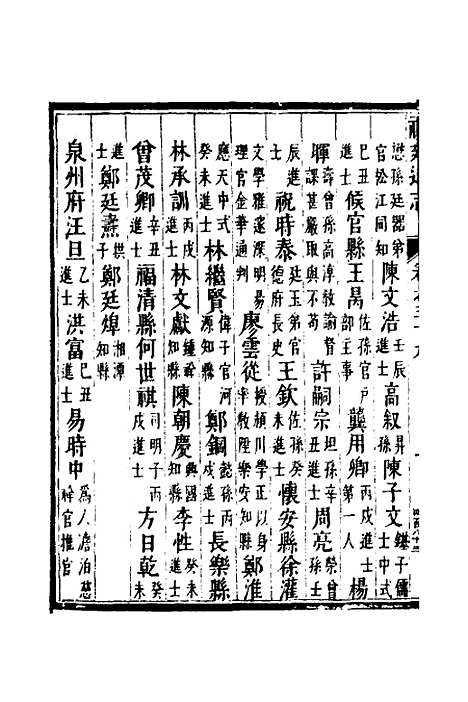 懋孫廷器弟官松江同知陳文浩壬辰進士高叙昇孫陳子文繼子儒士中式
己丑進士候官縣王昺佐孫官戶部主事龔用卿丙戌進士第一人楊
暉壽曾孫高淳敎諭督課甚嚴取與不苟許嗣宗坦孫辛丑進士周亮榮曾孫壬
辰進士祝時泰廷玉弟官德府長史王欽佐孫癸未進士懷安縣徐瀍
文學雅邃深明易理官金華通判廖雲從授潁川學正以身率敎陞樂安知縣鄭淮
應天中式癸未進士林繼賢偉子官河源知縣鄭鋼懿孫丙戌進士長樂縣
林承訓丙戌進士林文獻鍾幹知縣陳朝慶興國知縣李性癸未進士
曾茂卿辛丑進士福清縣何世祺司明子丙戌進士方日乾癸未
進士鄭廷燾珙子鄭廷焯湘潭知縣
泉州府汪旦乙未進士洪富己丑進士易時中爲人澹泊慈祥官推官